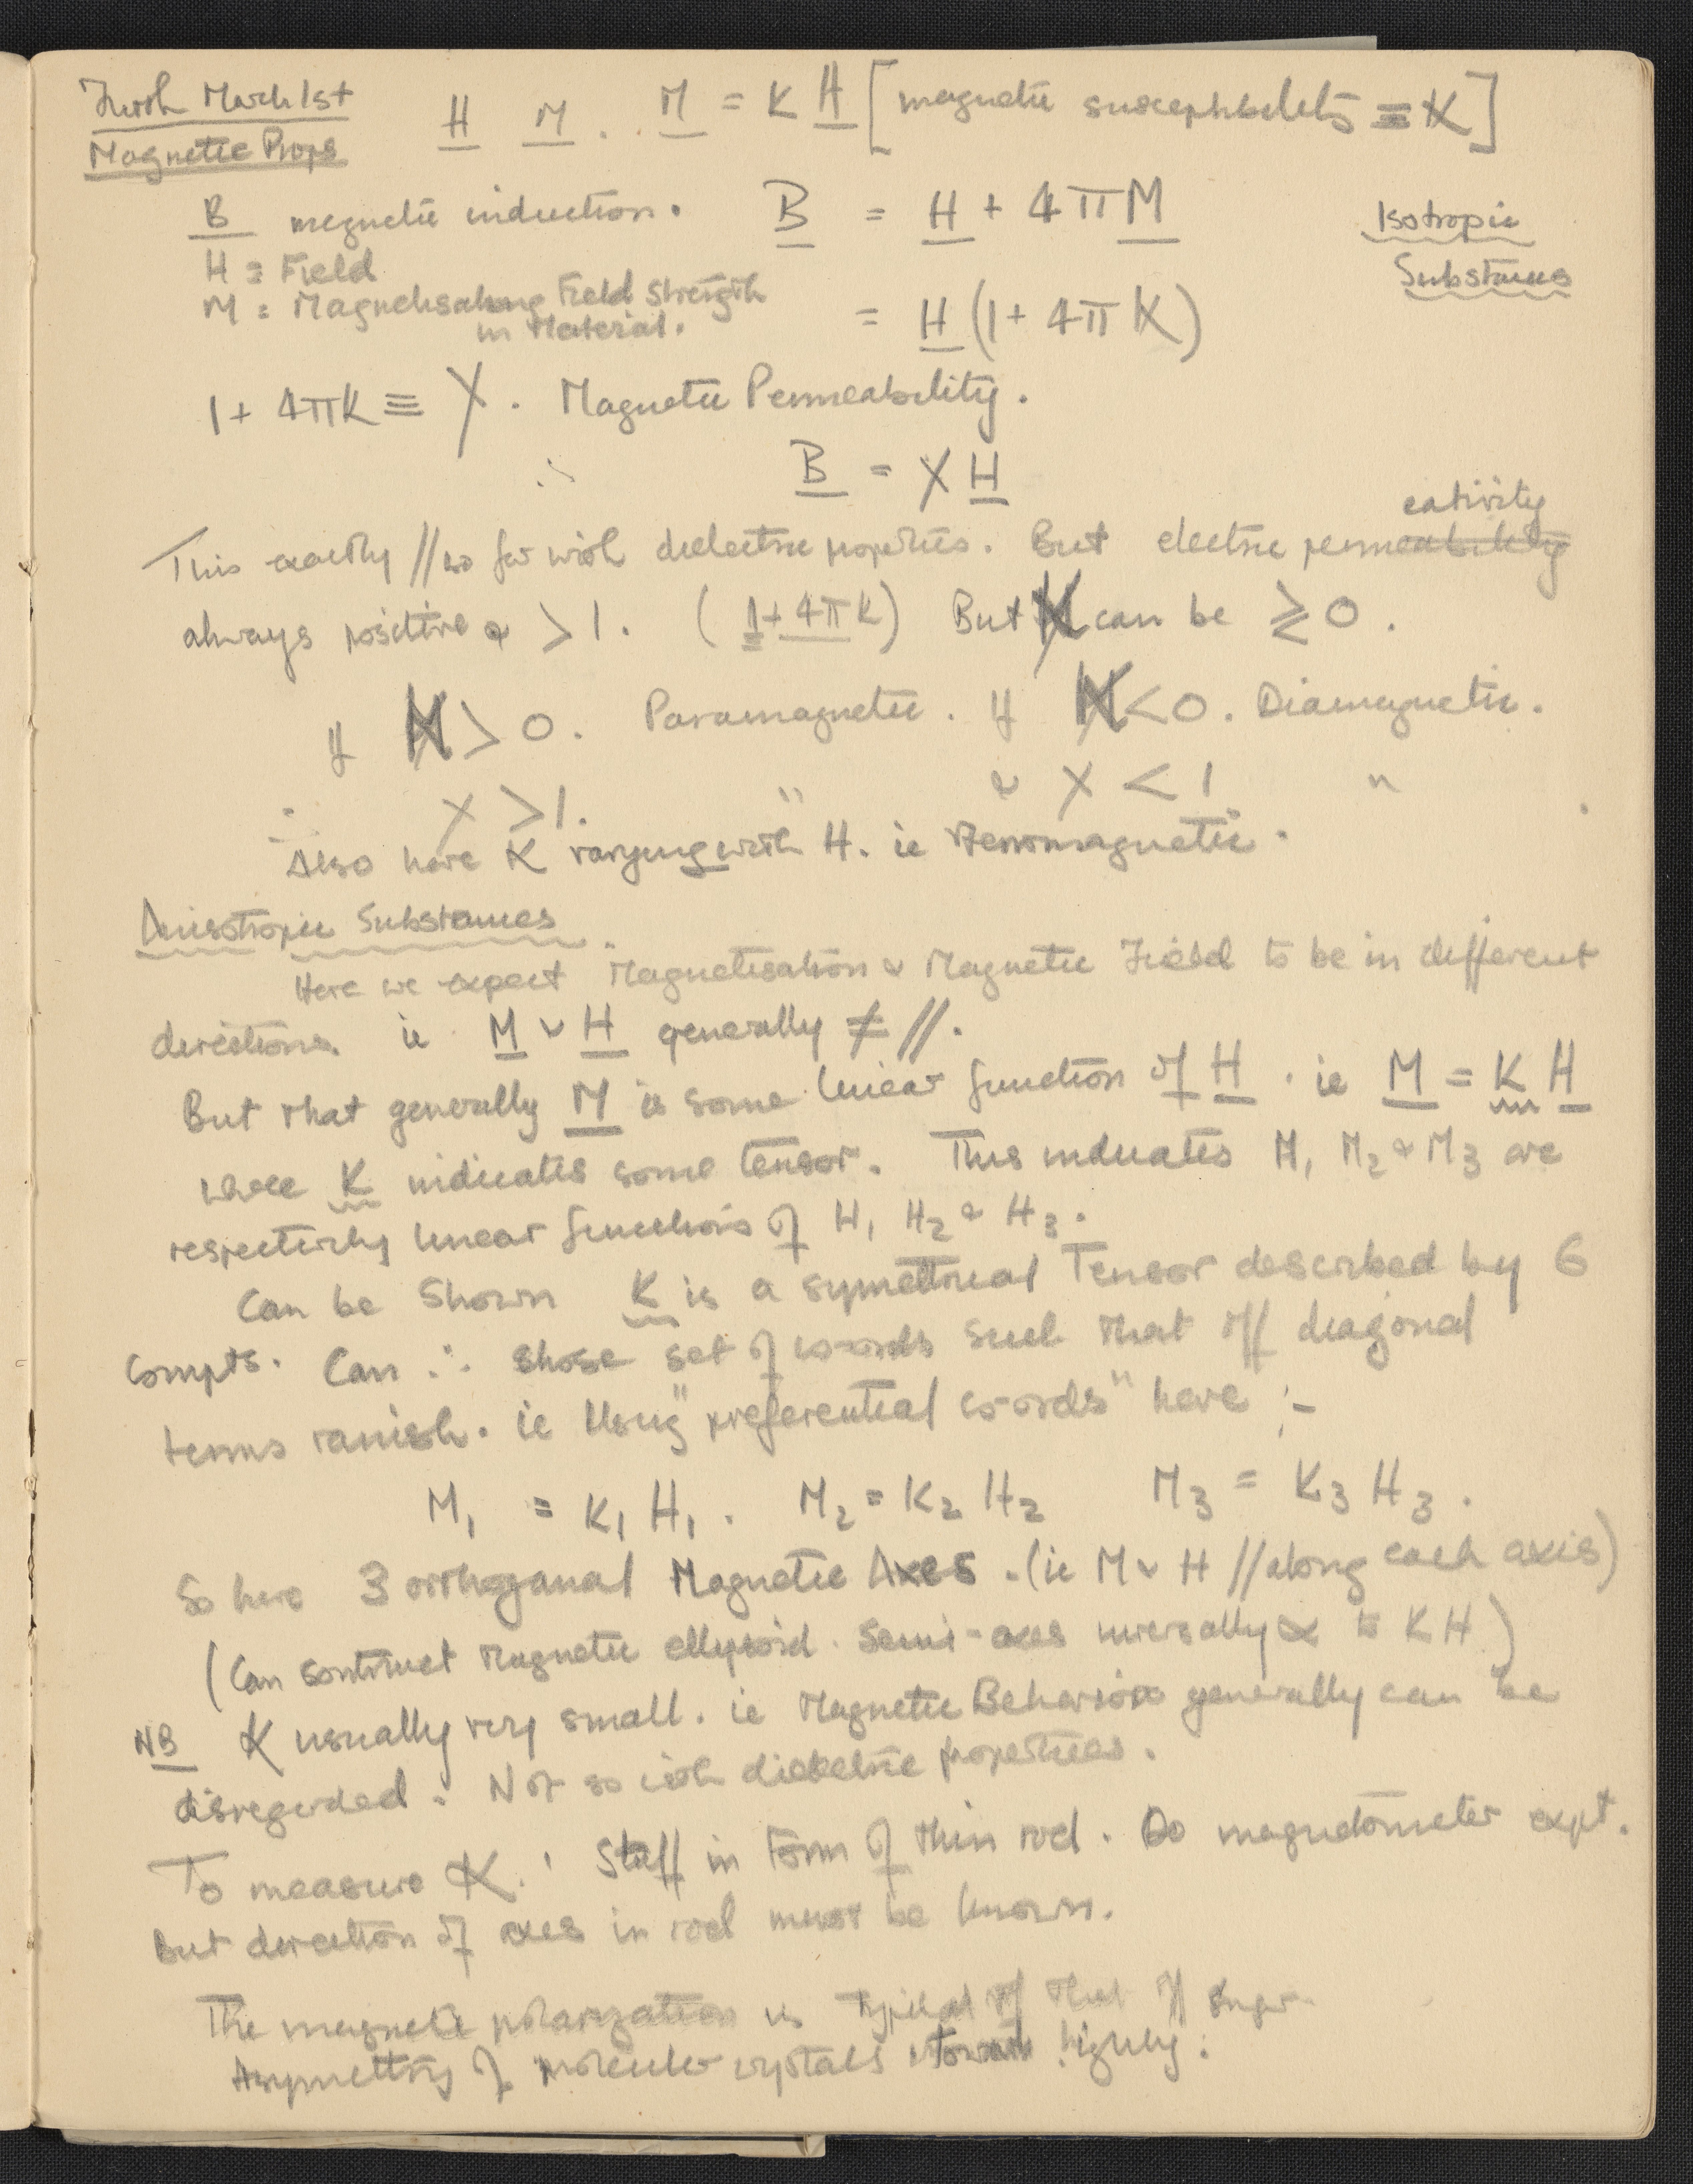 Furth March 1st
Magnetic Props
H M . . M = K H [magnetic susceptibility ≡ K]
B magnetic induction. B = H + 4πM
Isotropic
Substances
H ≡ Field
M = Magnetisating Field Strength
in Material.
= H (1 + 4πK)
1 + 4πK ≡ χ . Magnetic Permeability.
∴ B = χ H
This exactly // so far with dielectric properties. But electric permeability
eativity
always positive & > 1. (1 + 4πK) But K can be ≷ 0.
If K > 0. Paramagnetic. If K < 0. Diamagnetic.
∴ χ > 1. " & χ < 1 " .
Also have K varying with H. ie Ferromagnetic.
Anisotropic Substances.
Here we expect Magnetisation & Magnetic Field to be in different
directions. ie M & H generally ≠ //.
But that generally M is some linear function of H . ie M = K H
where K indicates some tensor. This indicates M1 M2 & M3 are
respectively linear functions of H1 H2 & H3.
Can be shown K is a symettrical Tensor described by 6
compts. Can ∴ chose set of co-ords such that off diagonal
terms vanish. ie Using "preferential co-ords" have :-
M1 = K1 H1. M2 = K2 H2 M3 = K3 H3.
So have 3 orthoganal Magnetic Axes. (ie M & H // along each axis)
(Can contruct Magnetic ellipsoid. Semi-axes inversally ∝ to KH)
NB K usually very small. ie Magnetic Behavior generally can be
disregarded. Not so with dielectric properties.
To measure K. Stuff in Form of thin rod. Do magnetometer expt.
But direction of axes in rod must be known.
The magnetic polarization is typical of that of
Asymettry of molecular crystals highly.